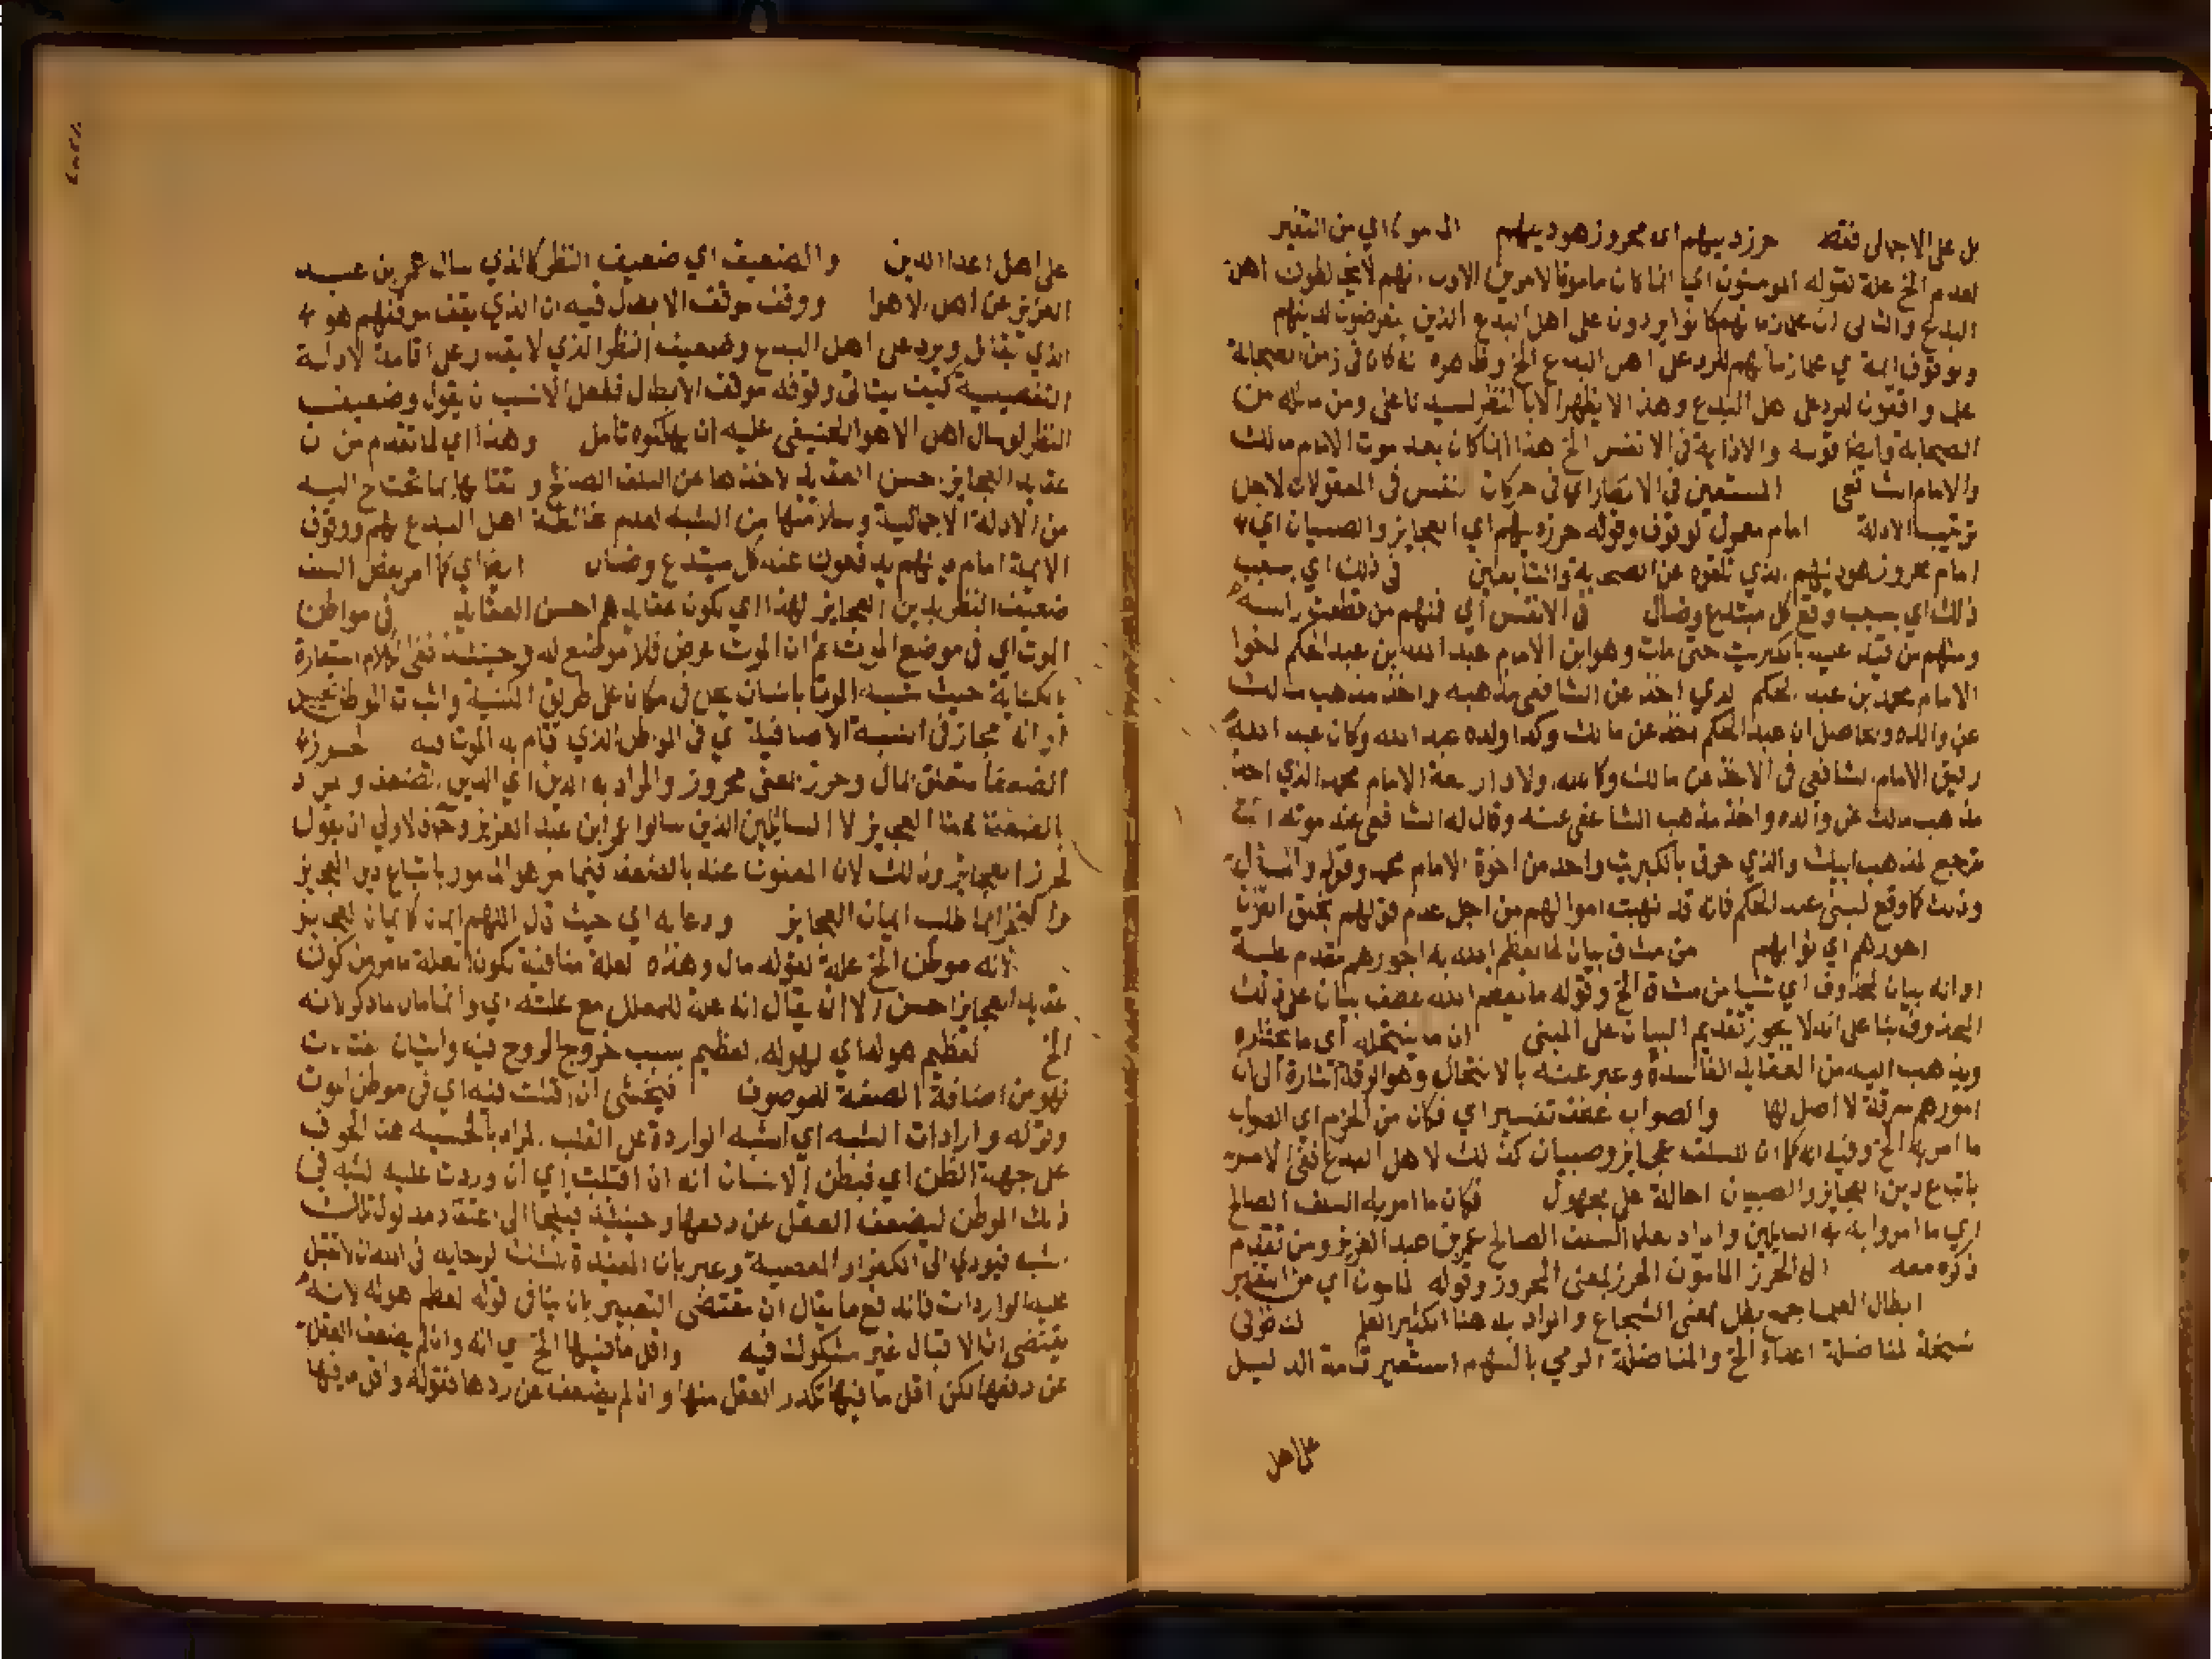 بل على الاجمالى فقط حرز دينهم اى محروز هو دينهم المأمون اي من التغير
لعدم الخ علة لقوله المومنون اي انما كان مامونا لامرين الاول انهم لا يخالطون اهل
البدع والثانى ان علماء زمانهم كانوا يردون على اهل البدع الذين يتعرضون لدينهم
ووقوف ايمة اي علماء زمانهم للرد على اهل البدع الخ وظاهره انه كان فى زمن الصحابة
علماء واقفون للرد على اهل البدع وهذا لا يظهر الا بالنظر لسيدنا على ومن ماثله من
الصحابة وايضا قوله والاذاية فى الانفس الخ هذا انما كان بعد موت الامام مالك
والامام الشافعى المستعين فى الانظار اي فى حركات النفس فى المعقولات لاجل
ترتيب الادلة امام معمول لوقوف وقوله حرز دينهم اي العجايز والصبيان اي
امام محروز هو دينهم الذي تلقوه عن الصحابة والتابعين فى ذلك اي بسبب
ذلك اي بسبب وقع كل مبتدع وضال فى الانفس اي فمنهم من قطعت راسه
ومنهم من قتل عليه بالكبريت حتى مات وهو ابن الامام عبد الله بن عبد الحكم اخوا
الامام محمد بن عبد الحكم الذي اخذ عن الشافعى مذهبه واخذ مذهب مالك
عن والده والحاصل ان عبد الحكم اخذ عن مالك وكذا ولده عبد الله وكان عبد الله
رفيق الامام الشافعى فى الاخذ عن مالك وكان له اولاد اربعة الامام محمد الذي اخذ
مذهب مالك عن والده واخذ مذهب الشافعى عنه وقال له الشافعى عند موته انت
ترجع لمذهب ابيك والذي حرق بالكبريت واحد من اخوة الامام محمد وقوله والمال
وذلك كما وقع لبنى عبد الحكم فانه قد نهبت اموالهم من اجل عدم قولهم بخلق القرآن
اجورهم اي ثوابهم من مشاق بيان لما يعظم الله به اجورهم مقدم عليه
او انه بيان لمحذوف اي شيا من مشاق الخ وقوله ما يعظم الله عطف بيان على ذلك
المحذوف بنا على انه لا يجوز تقديم البيان على المبنى ان ما ينتحله اي ما يختاره
ويذهب اليه من العقايد الفاسدة وعبر عنه بالانتحال وهو السرقة اشارة الى ان
امورهم سرقة لا اصل لها والصواب عطف تفسير اي فكان من الحزم اي الصواب
ما امر به الخ وفيه انه كما ان للسلف عجايز وصبيان كذلك لاهل البدع ففى الامر
باتباع دين العجايز والصبيان احالة على مجهول فكان ما امر به السلف الصالح
اي ما امروا به السايلين واراد بعلماء السلف الصالح عمر بن عبد العزيز ومن تقدم
ذكره معه الى الحرز المامون الحرز بمعنى المحروز وقوله المامون اي من التغير
ابطال العلما جمع بطل بمعنى الشجاع والمراد به هنا الكثير العلم لنضولى
شيخة لمناضلة اعداء الخ والمناضلة الرمي بالسهم استعير لاقامة الدليل
على اهل
على اهل اعدا الدين والضعيف اي ضعيف النظر كالذي سال عمر بن عبد
العزيز عن اهل الاهوا ووقف موقف الابطال فيه ان الذي يقف موقفهم هو
الذي يقاتل ويرد على اهل البدع وضعيف النظر الذي لا يقدر على اقامة الادلة
التفصيلية كيف يتاتى وقوفه موقف الابطال فلعل الانسب ان يقول وضعيف
النظر لو سال اهل الاهوا لخيف عليه ان يهلكوه تامل وهذا اي لما تقدم من ان
عقايد العجايز احسن العقايد لاخذها عن السلف الصالح واتقانها بما تحتاج اليه
من الادلة الاجمالية وسلامتها من الشبه لعدم مخالطة اهل البدع لهم ووقوف
الايمة امام دينهم يدفعون عنه كل مبتدع وضال ايضا اي كما امر بعض السلف
ضعيف النظر بدين العجايز لهذا اي لكون عقايدهم احسن العقايد فى مواطن
الموت اي فى موضع الموت ثم ان الموت عرض فلا موضع له وحينئذ ففى الكلام استعارة
بالكناية حيث شبه الموت بانسان يحل فى مكان على طريق المكنية واثبات الموطن تخييل
او انه مجاز فى النسبة الاضافية اي فى الموطن الذي قام به الموت فيه حرز
الضعفا متعلق بمال وحرز بمعنى محروز والمراد به الدين اي الدين الضعفا ويراد
بالضعفا هنا العجايز لا السائلين الذين سالوا عمر ابن عبد العزيز وحـ فالاولى ان يقول
لحرز العجايز وذلك لان المعنون عنه بالضعفا فيما مر هو المامور باتباع دين العجايز
طلب ايمان العجايز ودعايه اي حيث قال اللهم ايمانا كايمان العجايز
لانه موطن الخ علة لقوله مال وهذه العلة منافية لكون العلة ما مر من كون
عقايد العجايز احسن الا ان يقال انه علة للمعلل مع علته اي وانما مال لما ذكر لانه
الخ لعظيم هوله اي لهوله العظيم بسبب خروج الروح فيه واتيان الفتانات
فهو من اضافة الصفة للموصوف فيخشى ان افتلت فيه اي فى موطن الموت
وقوله وارادات الشبه اي الشبه الواردة على القلب المراد بالخشية هنا الخوف
على جهة الظن اي فيظن الانسان انه ان افتلت اي ان وردت عليه الشبه فى
ذلك الموطن ليضعف العقل عن دفعها وحينئذ فيلجا الى اعتقاد مدلول تلك
الشبه فيودي الى الكفر او المعصية وعبر بان المفيدة للشك لرجايه فى الله ان لا تقبل
عليه الواردات فاندفع ما يقال ان مقتضى التعبير بان ينافى قوله لعظم هوله لانه
يقتضى ان الاقبال غير مشكوك فيه واقل ما فيها الخ اي انه وان لم يضعف العقل
عن دفعها لكن اقل ما فيها تكدر العقل منها وان لم يضعف عن ردها فقوله واقل ما فيها